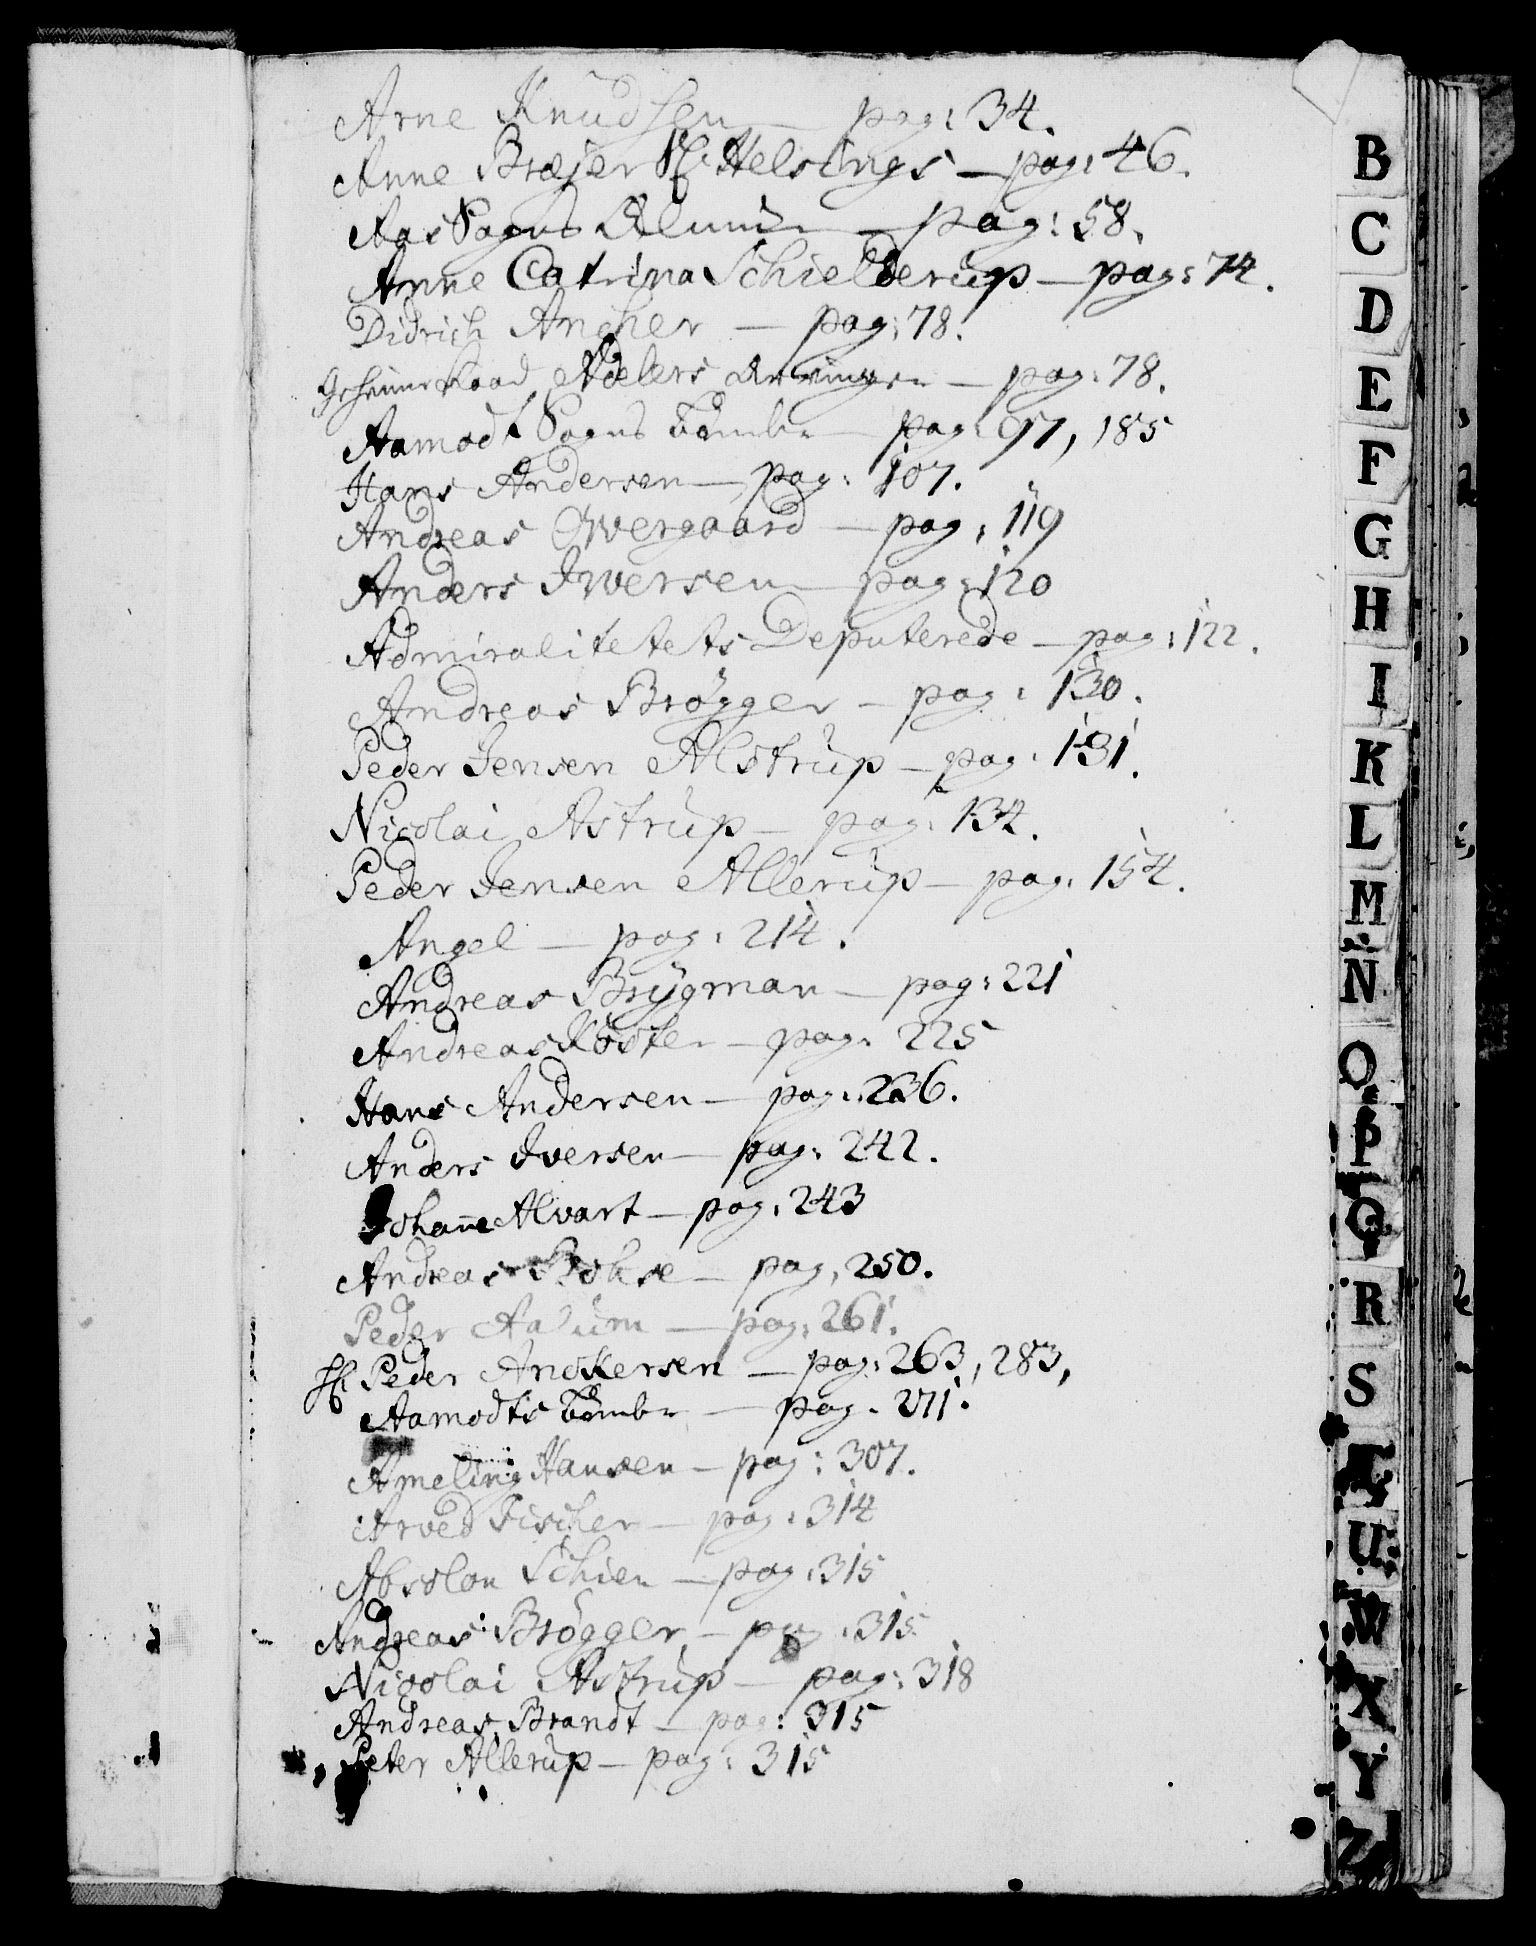 Arne Knudsen — pag: 34.
Anne Bræjer Sl: Helsings — pag: 46.
Aas Sogns AlMuue — pag: 58.
Anne Catrina Schielderup — pag: 74.
Didrich Ancher — pag: 78.
Geheimeraad Adelers Arvinger — pag: 78.
Aamodt Sogns Bønder — pag: 97, 185
Hans Andersen — pag: 107.
Andreas Overgaard — pag: 119
Anders Iversen — pag: 120
Admiralitetets Deputerede — pag: 122.
Andreas Brøgger — pag: 130.
Peder Jensen Alstrup — pag: 131.
Nicolai Astrup — pag: 134.
Peder Jensen Allerup — pag: 154.
Angel — pag: 214.
Andreas Brÿgman — pag: 221
Andreas Köster — pag: 225
Hans Andersen — pag: 236.
Anders Iversen — pag: 242.
Johan Alvart — pag: 243
Andreas — pag: 250.
Peder — pag: 261.
Sl: Peder Anckersen — pag: 263, 283,
Aamodts Bønder — pag: 271.
Ameling Hansen — pag: 307.
Arved Fischer — pag: 314
Absolon Schien — pag: 315
Andreas Brøgger — pag: 315
Nicolai Astrup — pag: 318
Andreas Brandt — pag: 315
Peter Allerup — pag: 315
B
C
D
E
F
G
H
I
K
L
M
N
O
P
Q
R
S
T
U
W
X
Y
Z